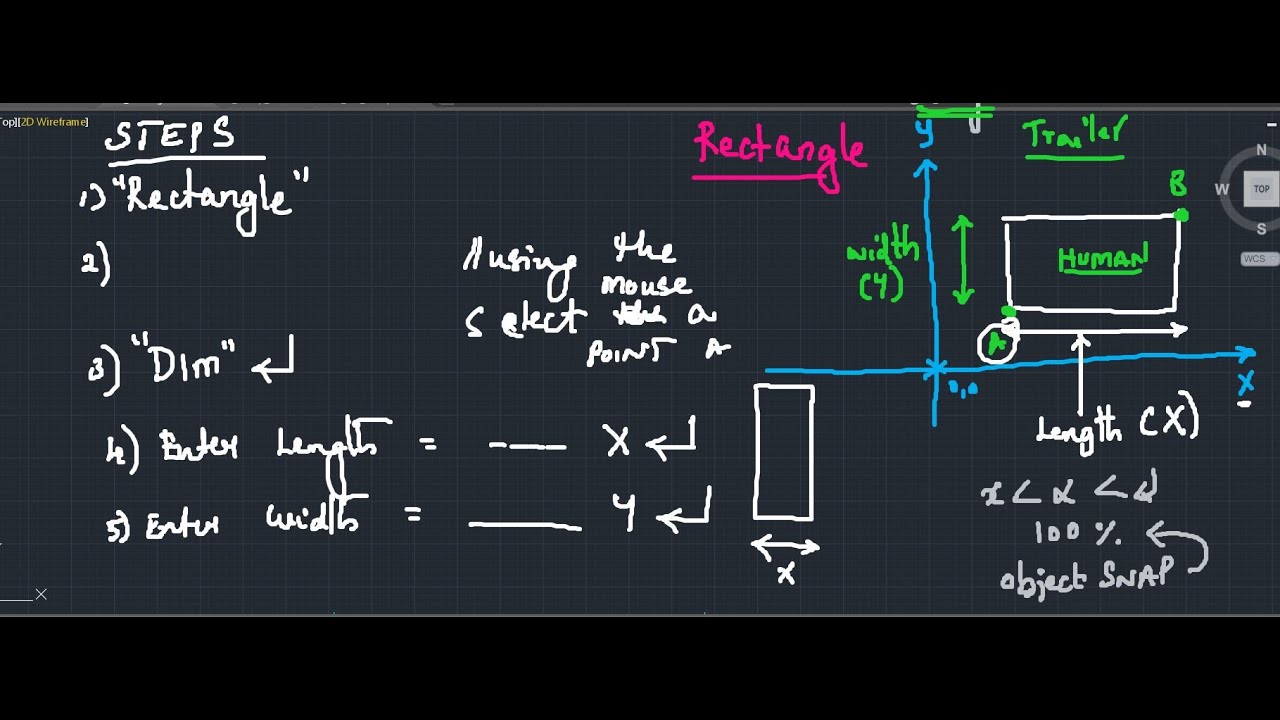 Top][2D Wireframe]
STEPS
1) "Rectangle"
2)
//using the
mouse
select a
POINT A
3) "DIm" ↵
4) Enter Length = ---- X ↵
5) Enter Width = ____ Y ↵
X
Rectangle
Y
Trailer
B
width
(Y)
HUMAN
A
0,0
X
Length (X)
100 %.
object SNAP
N
W
TOP
S
WCS
X